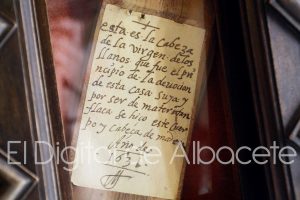 esta es la Cabeza
de la virgen de los
llanos que fue el prin
cipio de la deuocion
de esta casa suya y
por ser de materia tan
flaca se hiço este cuer
po y cabeça de made
año de
1631
El Digital de Albacete